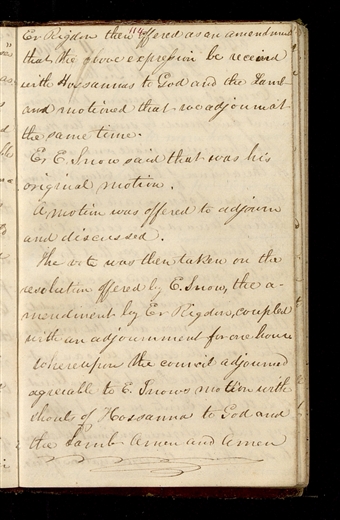 114
Er Rigdon then offered as an amendment
that the above expression be received
with Hossannas to God and the Lamb
and motioned that we adjourn at
the same time.
Er E. Snow said that was his
original motion.
A motion was offered to adjourn
and discussed.
The vote was then taken on the
resolution offered by E. Snow, the a-
mendment by Er Rigdon, coupled
with an adjournment for one hour
whereupon the council adjourned
agreeable to E. Snows motion with
shouts of Hossanna to God and
the Lamb Amen and Amen